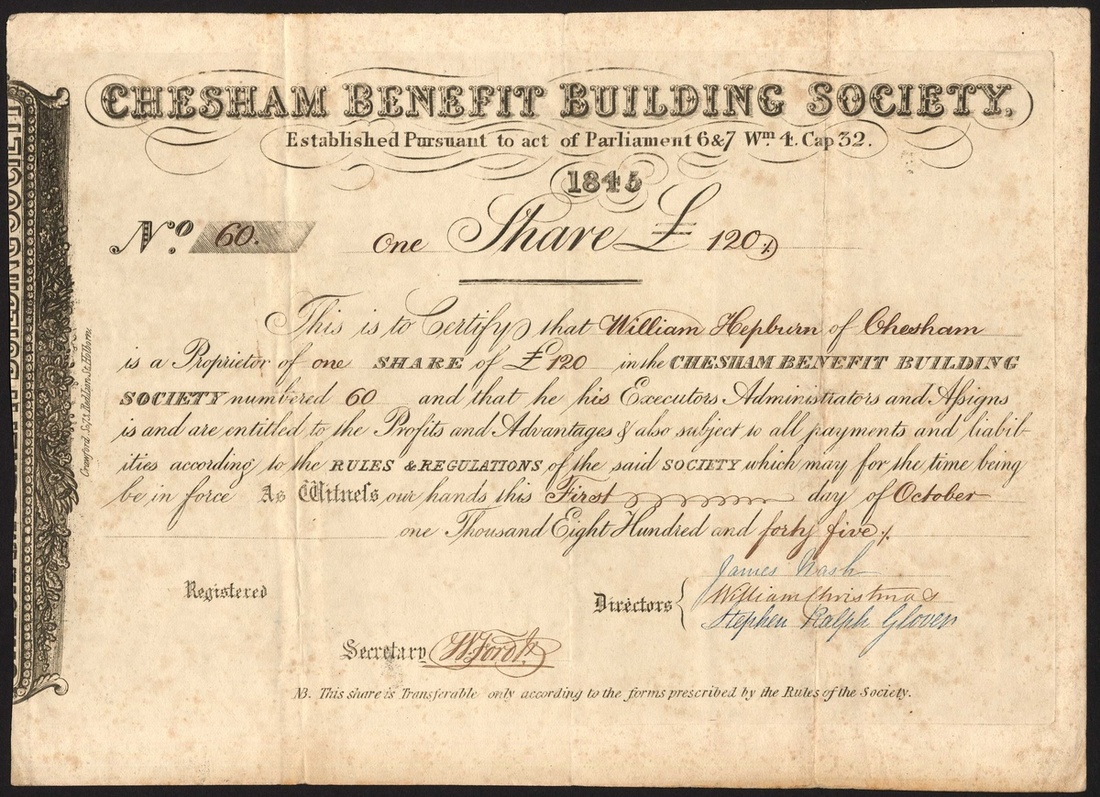 CHESHAM BENEFIT BUILDING SOCIETY.
Established Pursuant to act of Parliament 6&7 Wm. 4. Cap 32.
1845
No. 60. One Share £ 120
This is to Certify that William Hepburn of Chesham
is a Proprietor of one SHARE of £ 120 in the CHESHAM BENEFIT BUILDING
SOCIETY numbered 60 and that he his Executors Administrators and Assigns
is and are entitled to the Profits and Advantages & also subject to all payments and liabil-
ities according to the RULES & REGULATIONS of the said SOCIETY which may for the time being
be in force As Witness our hands this First day of October
one Thousand Eight Hundred and forty five
Registered
Directors
James Nash
William Christmas
Stephen Ralph Glover
Secretary W. Ford Jr
NB. This share is Transferable only according to the forms prescribed by the Rules of the Society.